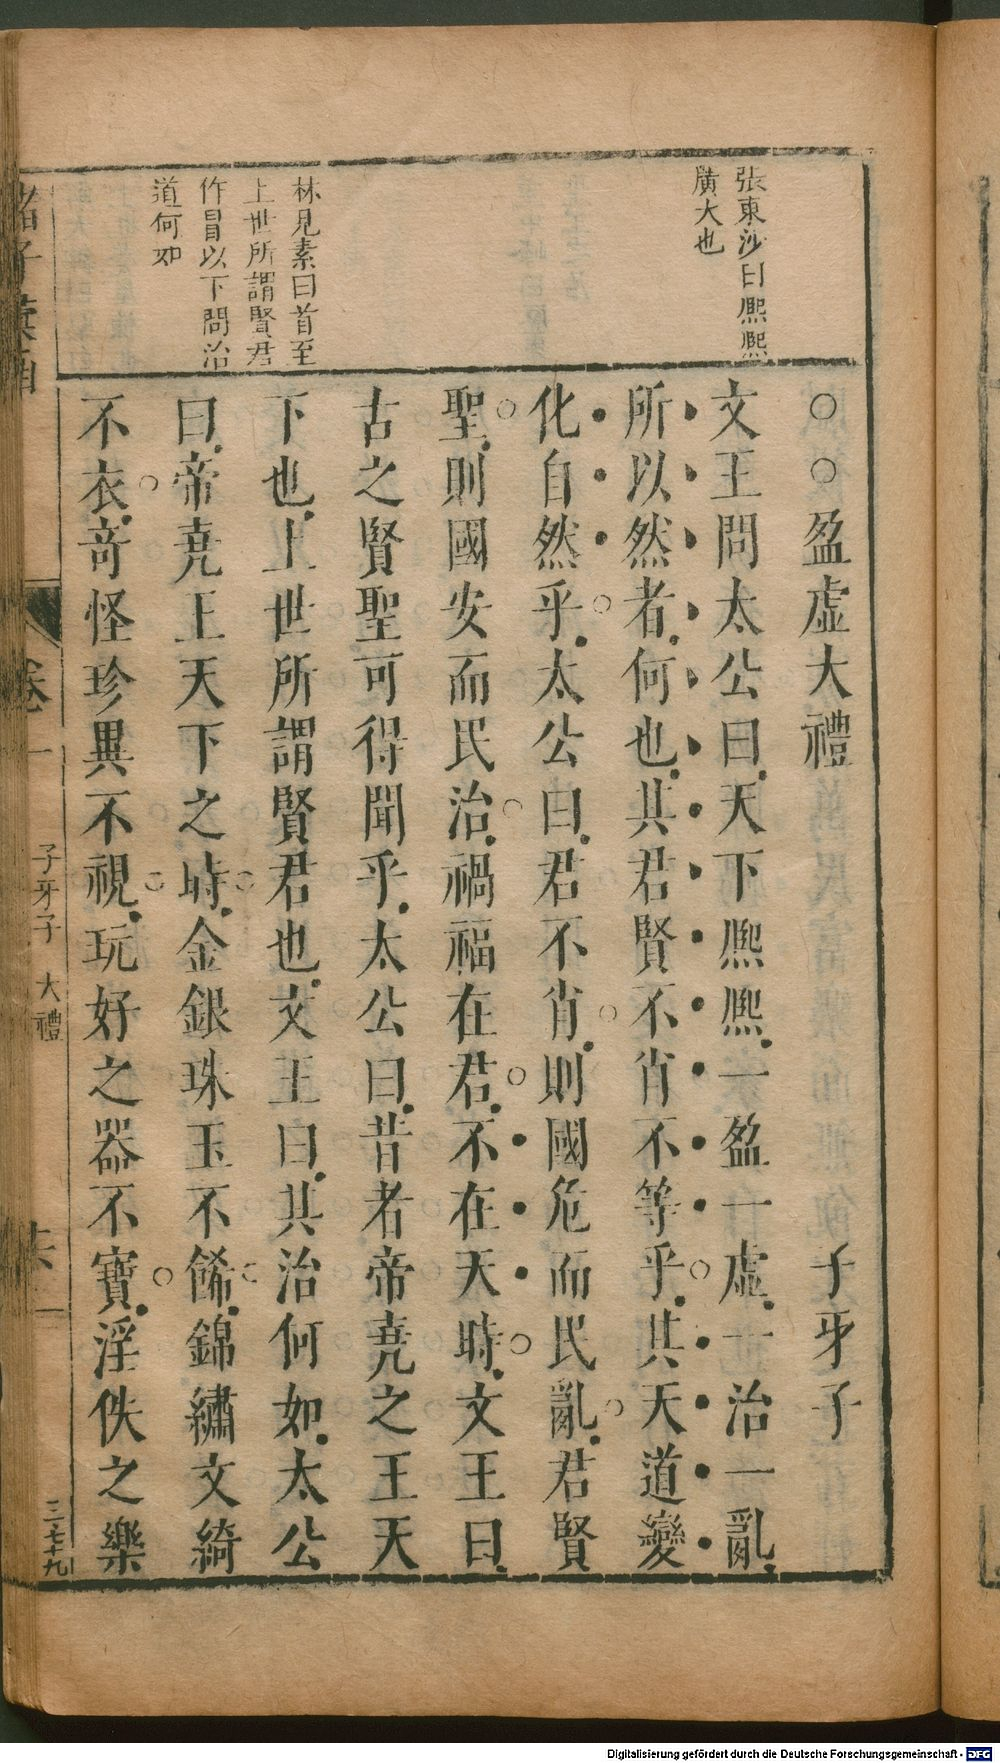 張東沙曰熈熈
廣大也
林見素曰首至
上世所謂賢君
作冒以下問治
道何如
○○盈虚大禮 子牙子
文王問太公曰天下熈熈一盈一虚一治一亂
所以然者何也其君賢不肖不等乎其天道變
化自然乎太公曰君不肖則國危而民亂君賢
聖則國安而民治禍福在君不在天時文王曰
古之賢聖可得聞乎太公曰昔者帝堯之王天
下也上世所謂賢君也文王曰其治何如太公
曰帝堯王天下之時金銀珠玉不餙錦繡文綺
不衣竒怪珍異不視玩好之器不寶淫佚之樂
卷一 子牙子 大禮
Digitalisierung gefördert durch die Deutsche Forschungsgemeinschaft - DFG